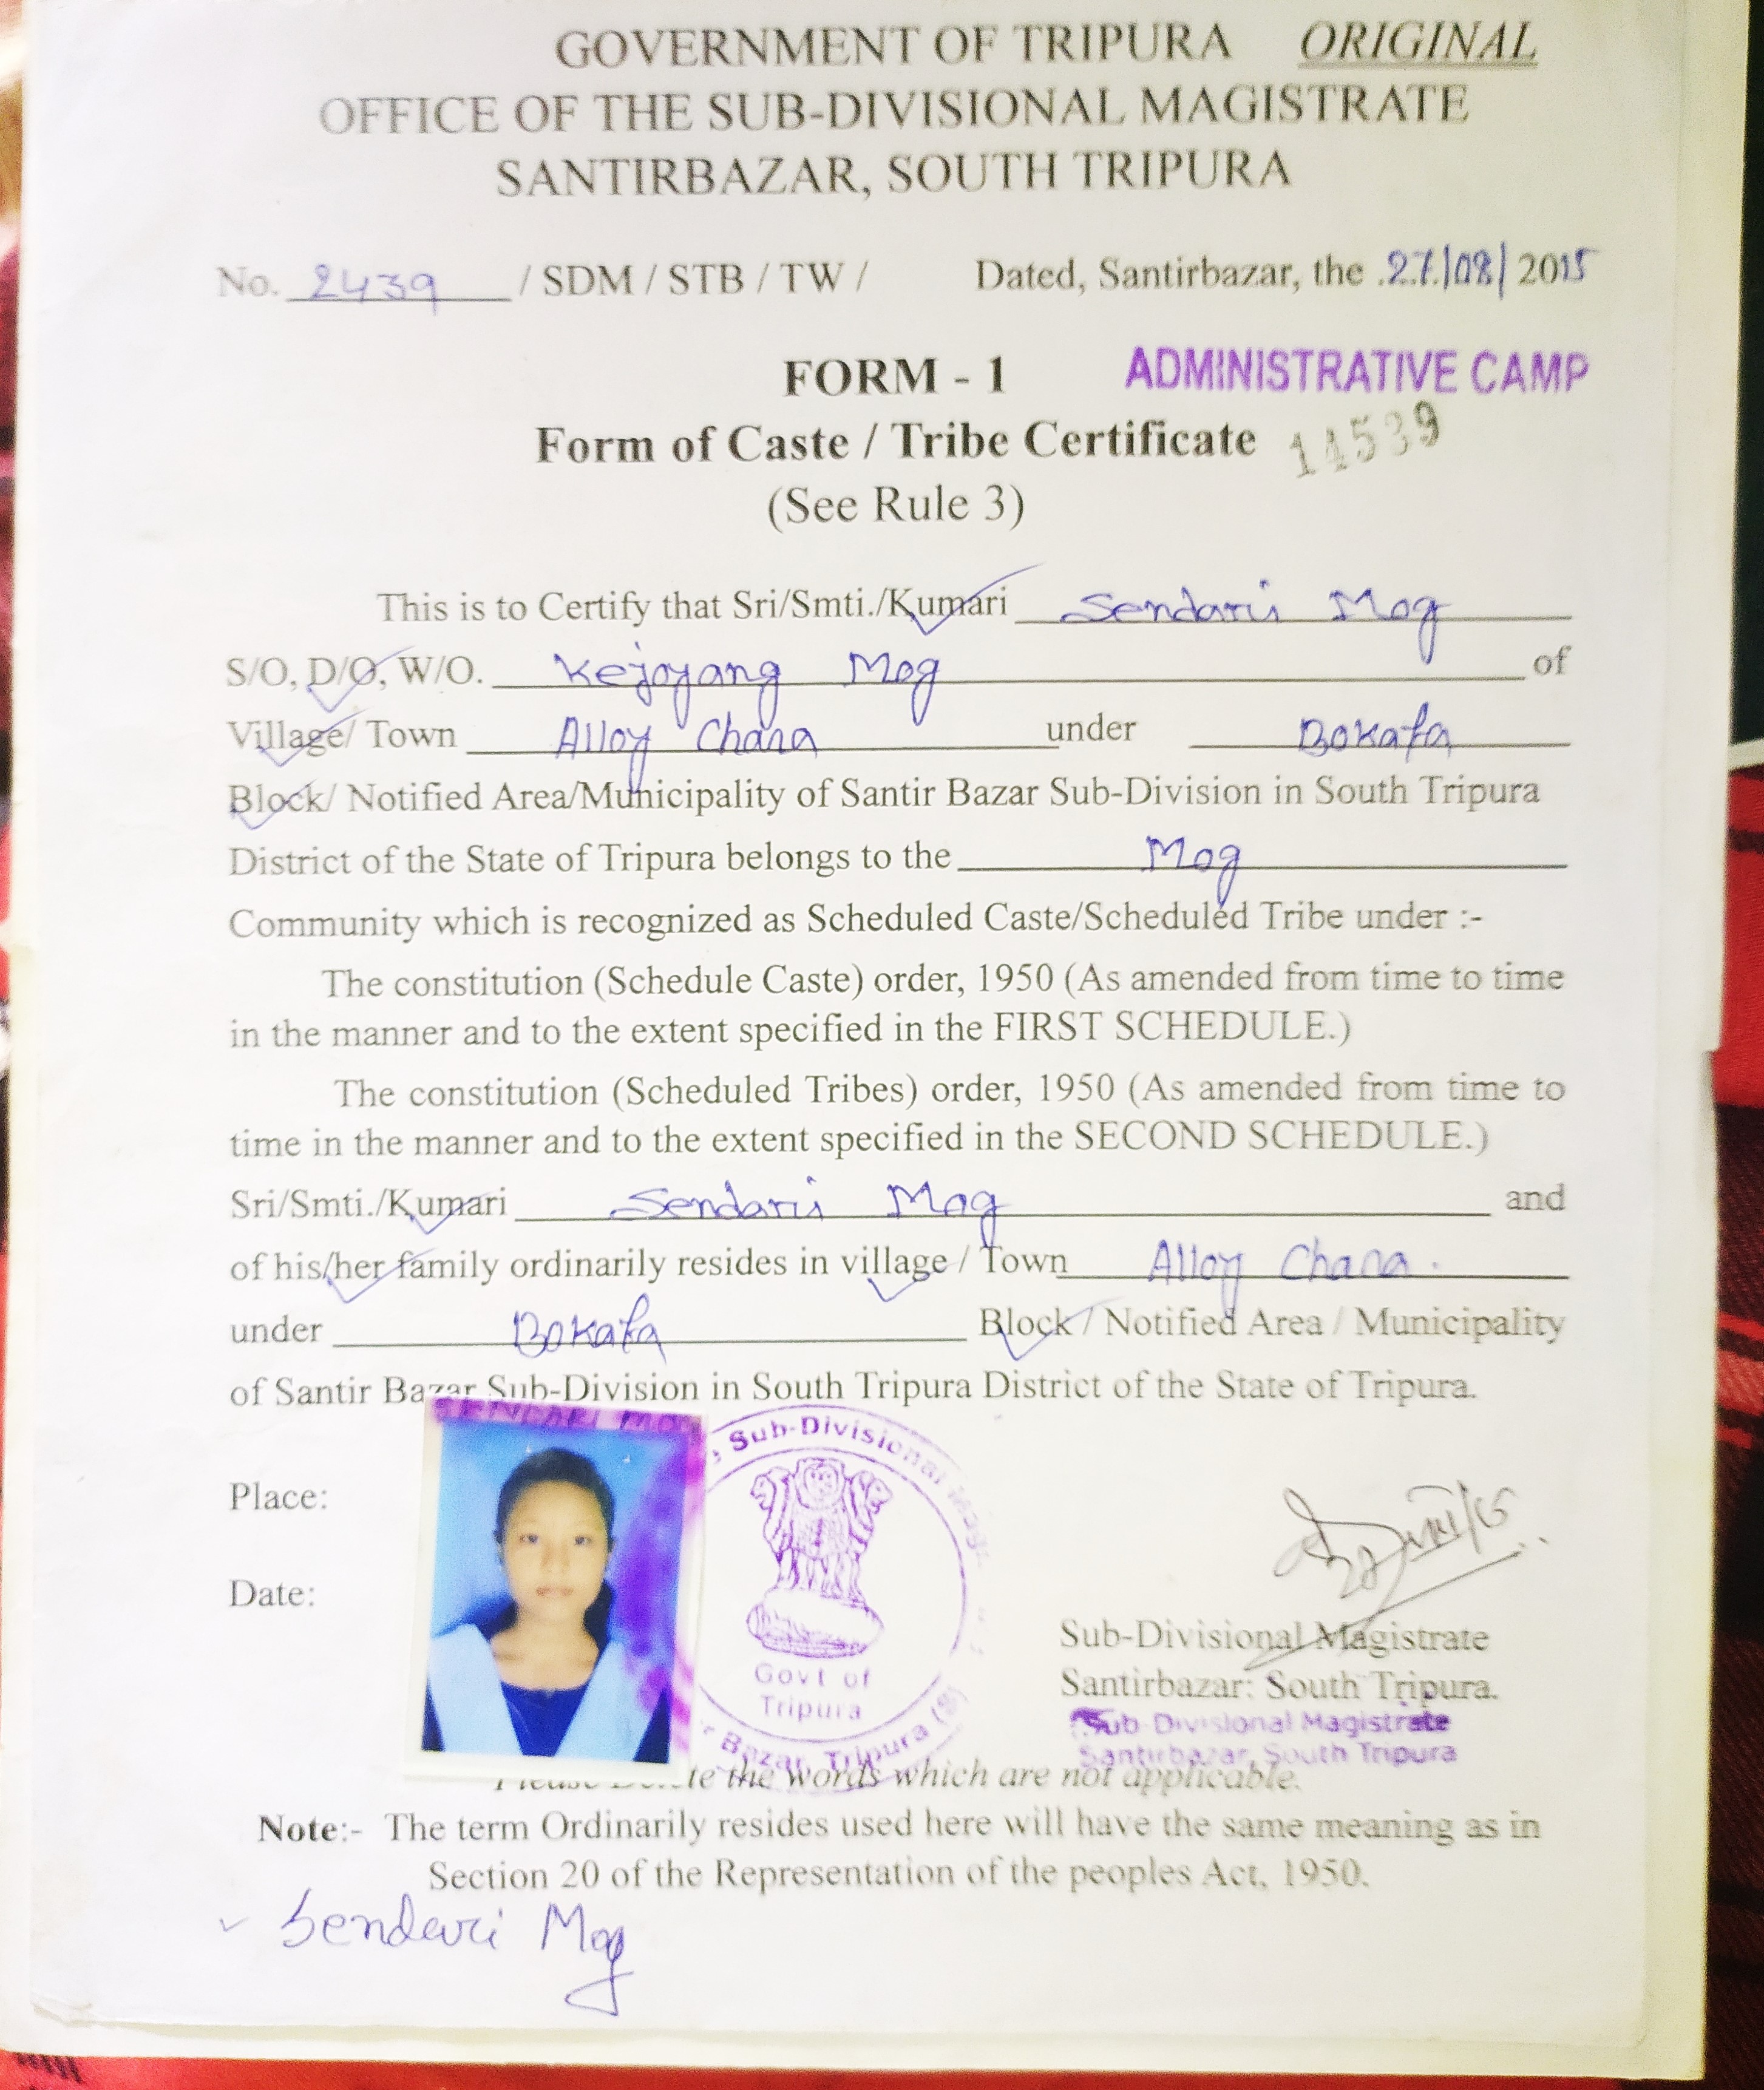 GOVERNMENT OF TRIPURA ORIGINAL
OFFICE OF THE SUB-DIVISIONAL MAGISTRATE
SANTIRBAZAR, SOUTH TRIPURA
No. 2439 / SDM / STB / TW / Dated, Santirbazar, the 27/08/2015
FORM - 1 ADMINISTRATIVE CAMP
Form of Caste / Tribe Certificate 14539
(See Rule 3)
This is to Certify that Sri/Smti./Kumari Sendari Mog
S/O, D/O, W/O. Kejoyang Mog of
Village/ Town Alloy Chara under Bokafa
Block/ Notified Area/Municipality of Santir Bazar Sub-Division in South Tripura
District of the State of Tripura belongs to the Mog
Community which is recognized as Scheduled Caste/Scheduled Tribe under :-
The constitution (Schedule Caste) order, 1950 (As amended from time to time
in the manner and to the extent specified in the FIRST SCHEDULE.)
The constitution (Scheduled Tribes) order, 1950 (As amended from time to
time in the manner and to the extent specified in the SECOND SCHEDULE.)
Sri/Smti./Kumari Sendari Mog and
of his/her family ordinarily resides in village / Town Alloy Chara.
under Bokafa Block / Notified Area / Municipality
of Santir Bazar Sub-Division in South Tripura District of the State of Tripura.
SENDARI MOG
Sub-Divisional
Place:
Date:
Govt of
Tripura
Bazar, Tripura (S)
Sub-Divisional Magistrate
Santirbazar: South Tripura.
Sub-Divisional Magistrate
Santirbazar, South Tripura
Please the words which are not applicable.
Note:- The term Ordinarily resides used here will have the same meaning as in
Section 20 of the Representation of the peoples Act, 1950.
Sendari Mog